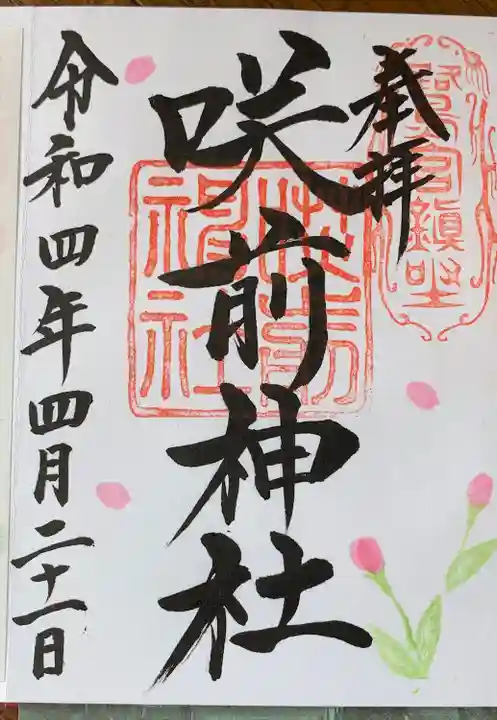 奉拝
咲前神社
令和四年四月二十一日
咲前神社